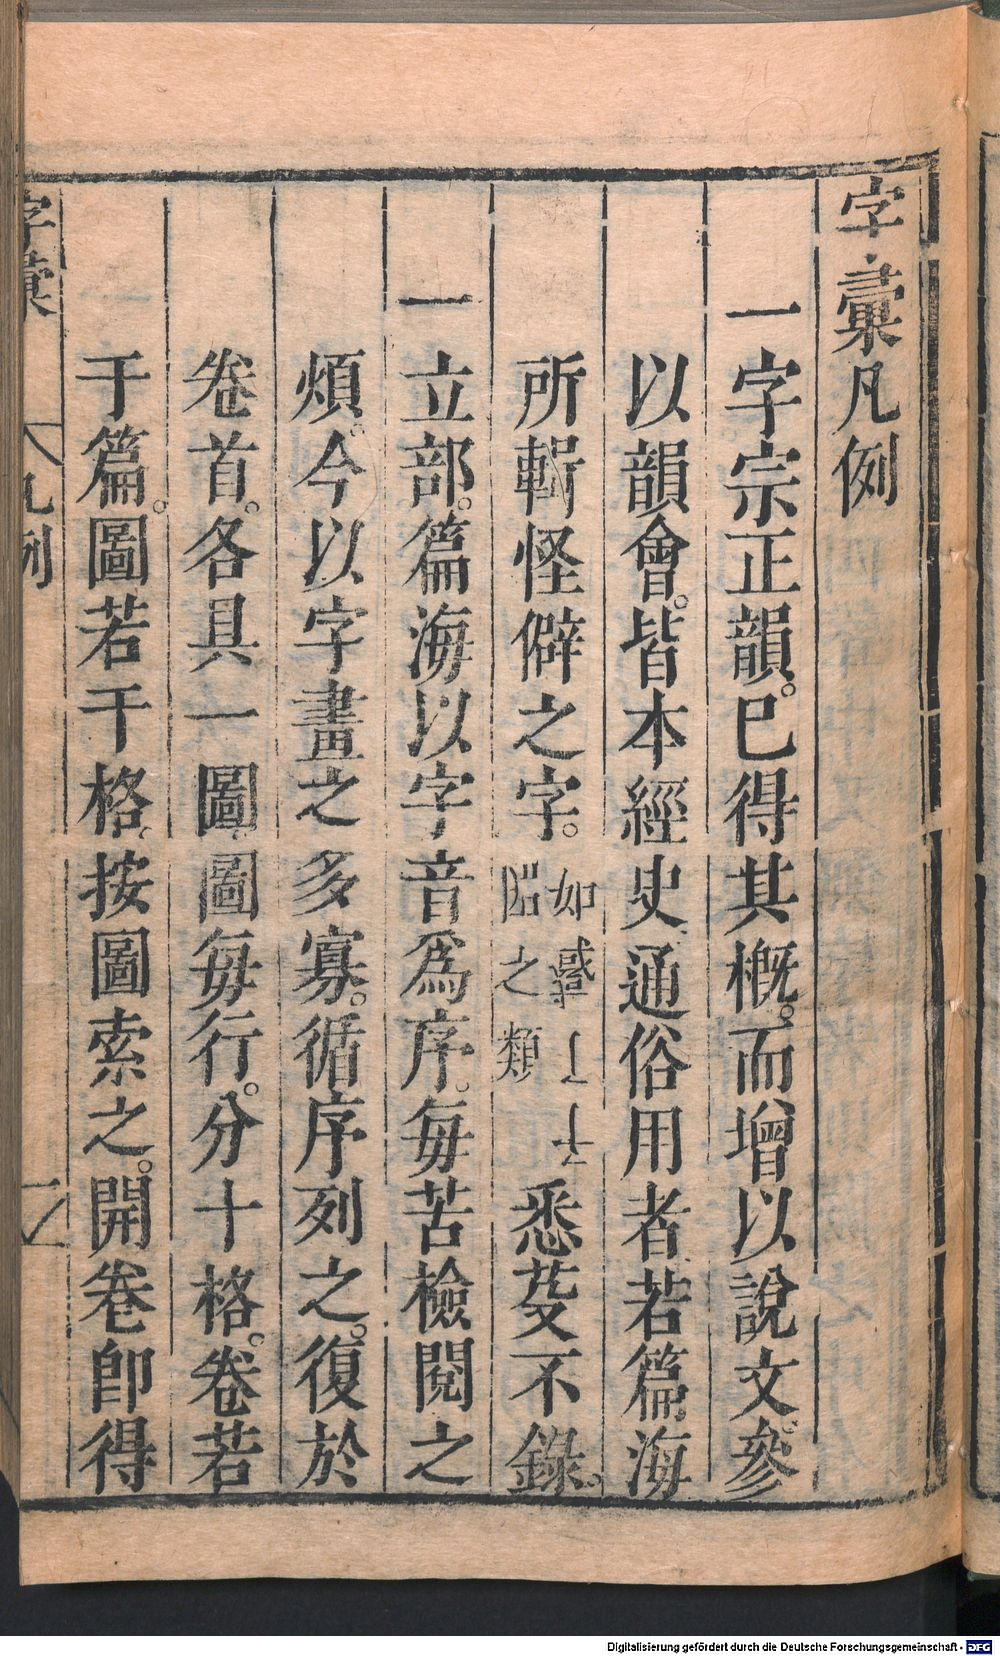 字彙凡例
一字宗正韻。已得其概。而增以說文。參
以韻會。皆本經史通俗用者若篇海
所輯怪僻之字。如𢦤
㘝之類悉芟不錄。
一立部。篇海以字音爲序。每苦檢閱之
煩。今以字畫之多寡。循序列之。復於
卷首。各具一圖。圖每行。分十格。卷若
干篇。圖若干格。按圖索之。開卷卽得
字彙 凡例
Digitalisierung gefördert durch die Deutsche Forschungsgemeinschaft - DFG